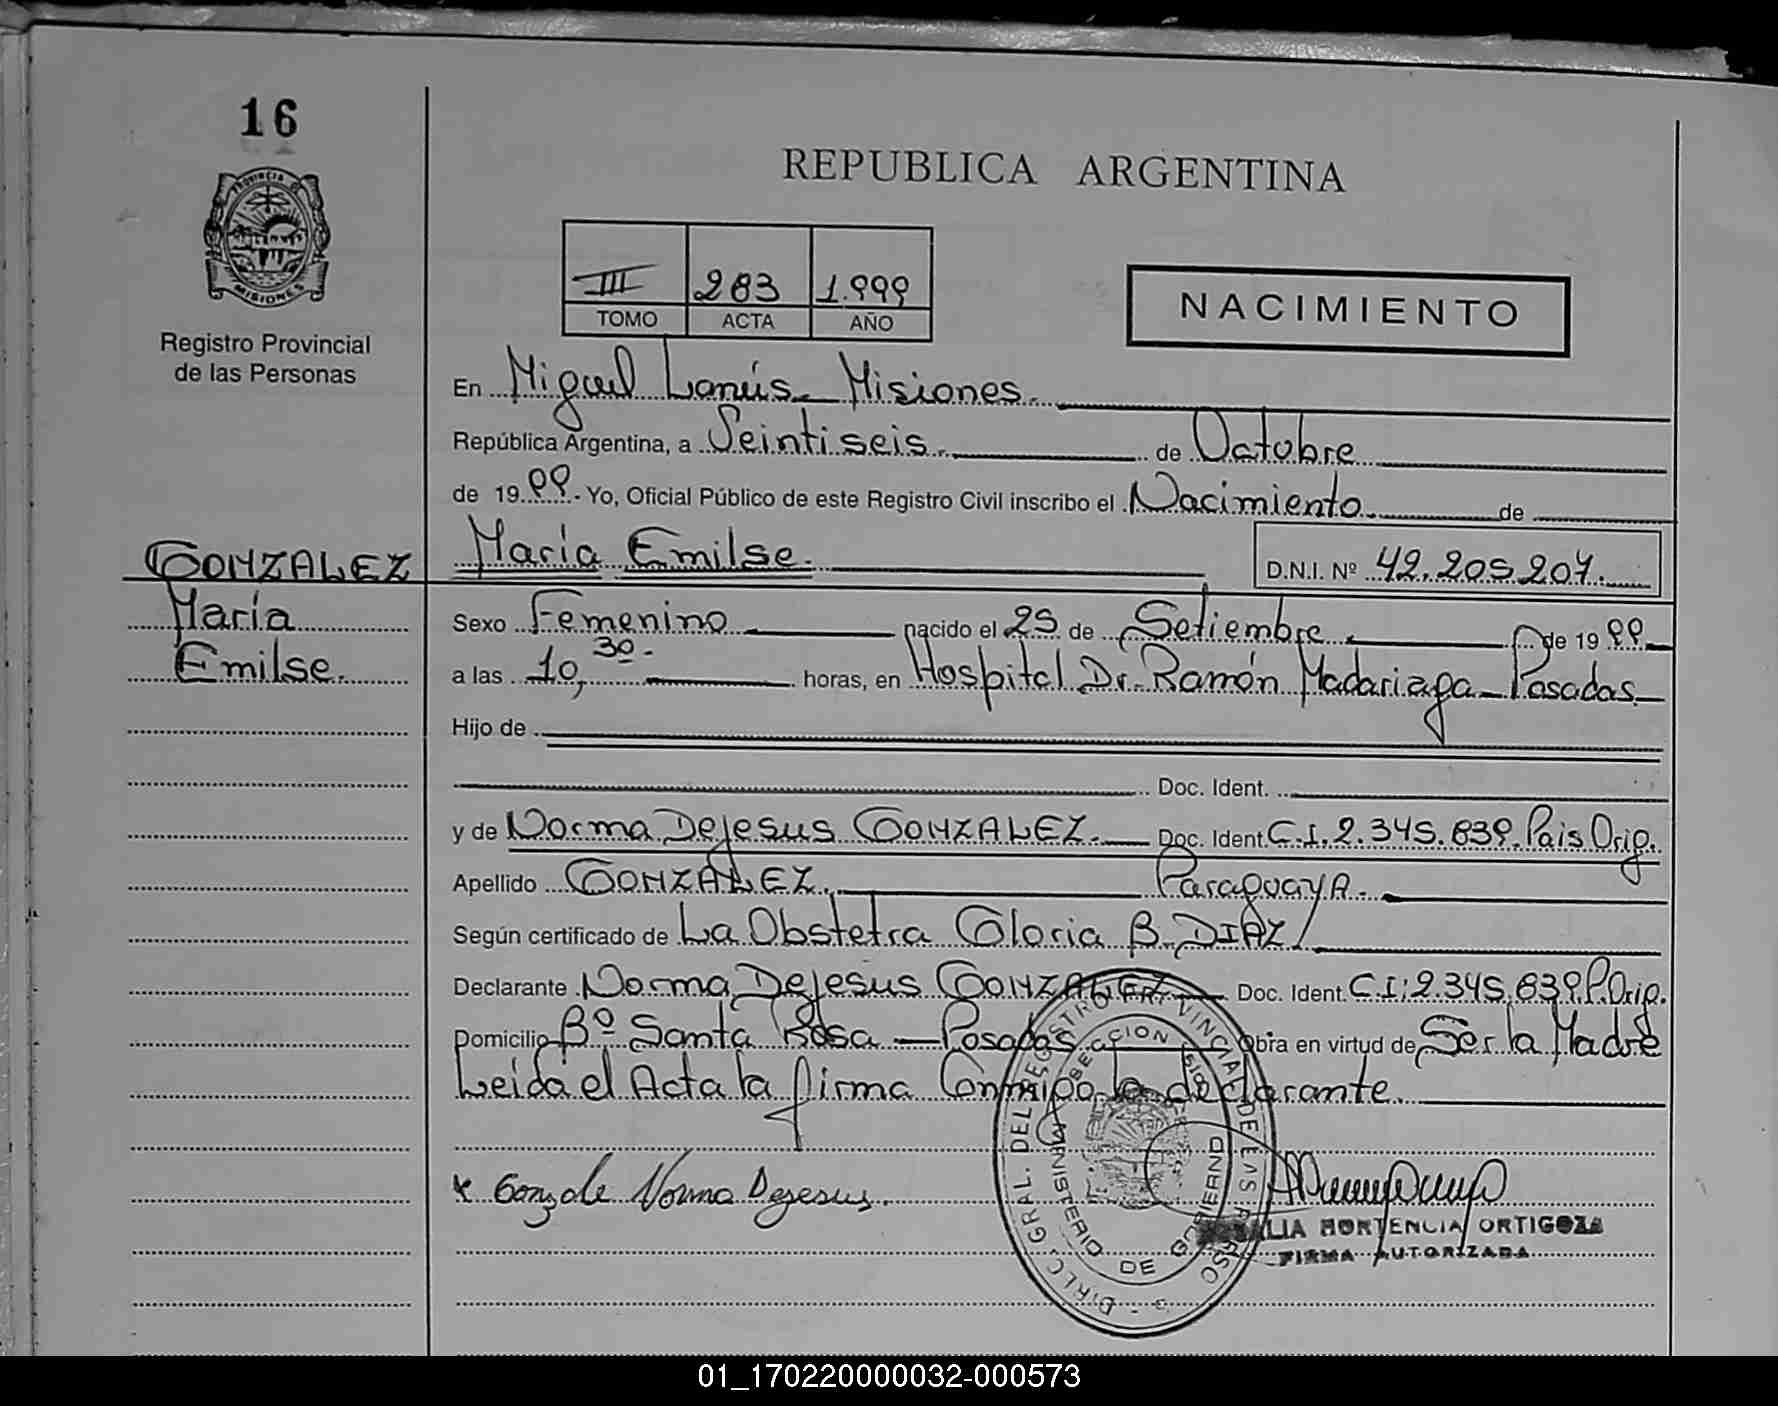 16
PROVINCIA DE
MISIONES
Registro Provincial
de las Personas
REPUBLICA ARGENTINA
III 283 1.999
TOMO ACTA AÑO
NACIMIENTO
En Miguel Lanús - Misiones.
República Argentina, a Veintiseis. de Octubre
de 19 99.- Yo, Oficial Público de este Registro Civil inscribo el Nacimiento. de
María Emilse. D.N.I. Nº 42.205.207.
GONZALEZ
María
Emilse.
Sexo Femenino nacido el 25 de Setiembre. de 19 99.
a las 10,30.- horas, en Hospital Dr. Ramón Madariaga - Posadas.
Hijo de
Doc. Ident.
y de Norma Dejesus GONZALEZ. Doc. Ident. C.I. 2.345.839. Pais Orig.
Apellido GONZALEZ. ParaguayA.
Según certificado de La Obstetra Gloria B. DIAZ/
Declarante Norma Dejesus GONZALEZ Doc. Ident. C.I: 2.345.839 P. Orig.
Domicilio Bº Santa Rosa - Posadas Obra en virtud de Ser la Madre
Leida el Acta la firma Conmigo la declarante.
x Gonzale Norma Dejesus.
DIREC. GRAL. DEL REGISTRO PROVINCIAL DE LAS PERSO
SECCION
MINISTERIO DE GOBIERNO
HORTENCIA ORTIGOZA
FIRMA AUTORIZADA
01_170220000032-000573